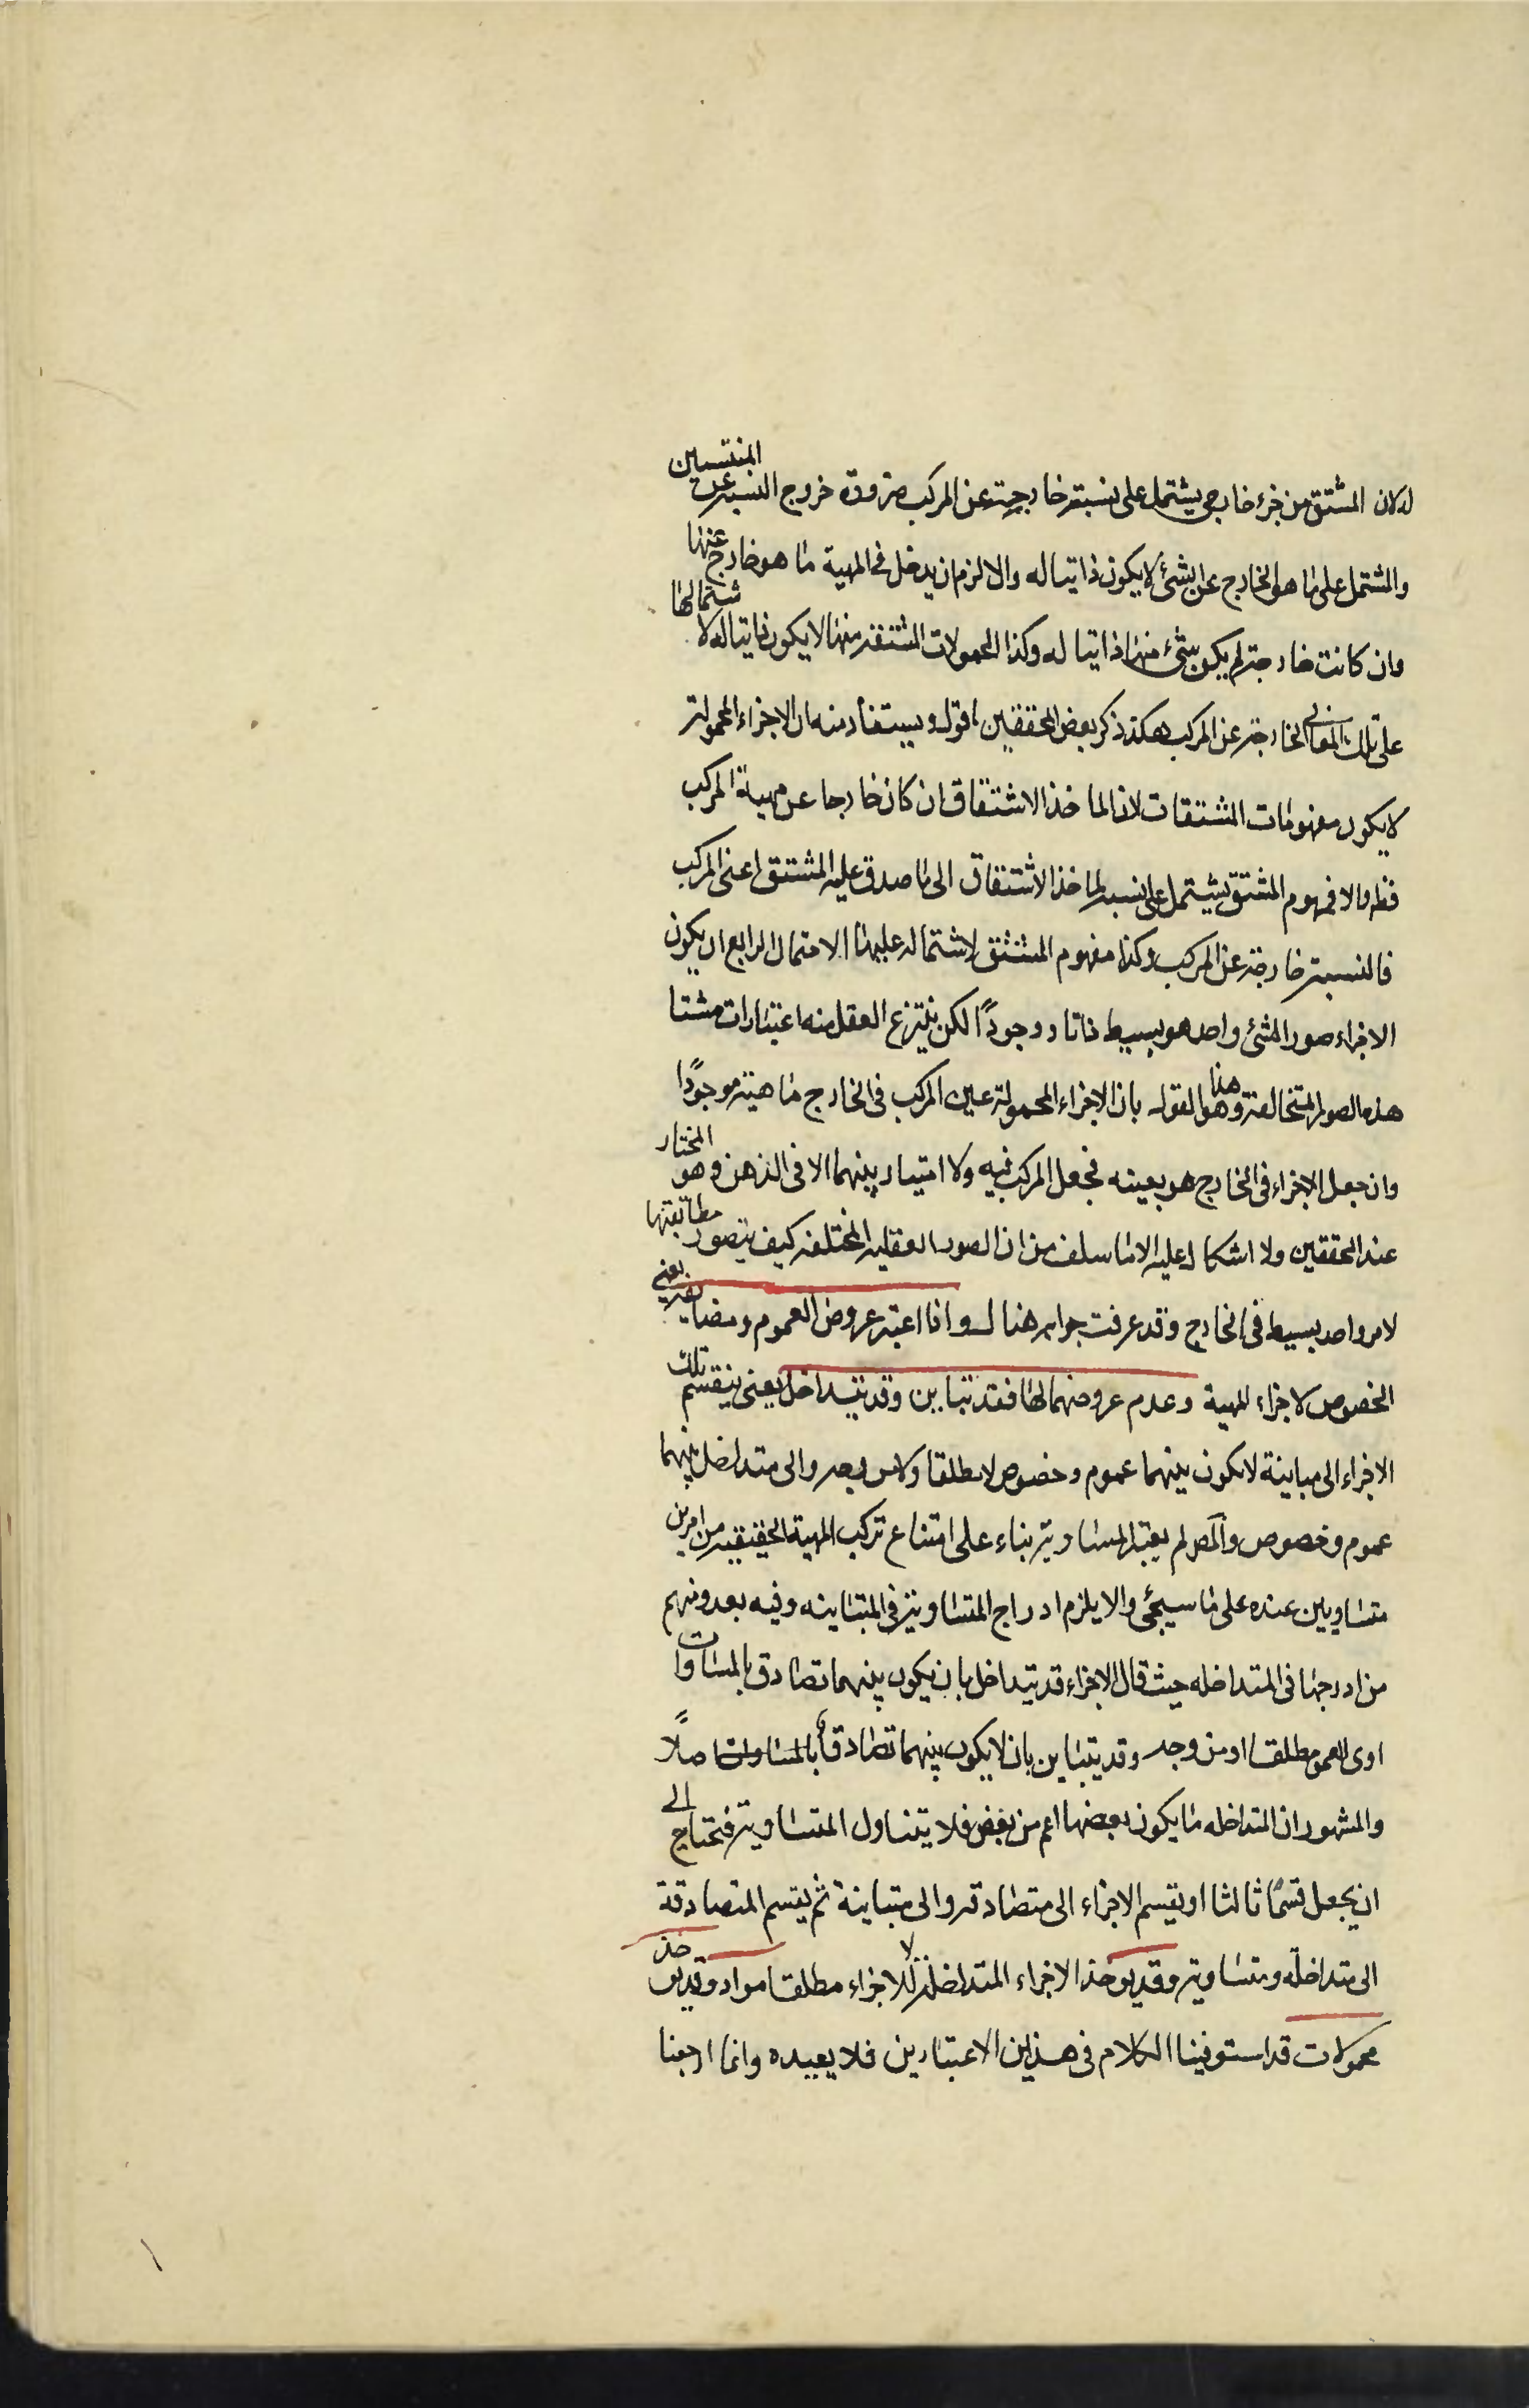 له لان المشتق من جزء خارجى يشتمل على نسبته خارجة عن المركب ضرورة خروج النسبة عن المنتسبين
والمشتمل على ما هو الخارج عن الشئ لا يكون ذاتيا له والا لزم ان يدخل فى المهية ما هو خارج عنها
وان كانت خارجة لم يكن شئ منها ذاتيا له وكذا المحمولات المشتقة منها لا يكون ذاتيا له لاشتمالها
على تلك المعانى الخارجة عن المركب هكذا ذكر بعض المحققين اقول ويستفاد منه ان الاجزاء المحمولة
لا يكون مفهومات المشتقات لان الماخذ الاشتقاق ان كان خارجا عن مهية المركب
فظ والا فمفهوم المشتق يشتمل على نسبة الماخذ الاشتقاق الى ما صدق عليه المشتق اعنى المركب
فالنسبة خارجة عن المركب وكذا مفهوم المشتق لاشتماله عليها الاحتمال الرابع ان يكون
الاجزاء صورا لشئ واحد هو بسيط ذاتا ووجودًا لكن ينتزع العقل منه اعتبارات شتا
هذه الصور المتخالفة وهذا هو القول بان الاجزاء المحمولة عين المركب فى الخارج ماهية ووجودًا
وان جعل الاجزاء فى الخارج هو بعينه جعل المركب فيه ولا امتياز بينهما الا فى الذهن وهو المختار
عند المحققين ولا اشكال عليه الا ما سلف من ان الصور العقلية المختلفة كيف يتصور مطابقتها
لامر واحد بسيط فى الخارج وقد عرفت جوابه هناك واذا اعتبر عروض العموم ومضايفه يعنى
الخصوص لاجزاء المهية وعدم عروضهما لها فقد تتباين وقد تتداخل يعنى ينقسم تلك
الاجزاء الى مباينة لا يكون بينهما عموم وخصوص لا مطلقا ولا من وجه والى متداخل بينهما
عموم وخصوص والمص لم يعتبر المساوية بناء على امتناع تركب المهية الحقيقية من امرين
متساويين عنده على ما سيجئ والا يلزم ادراج المتساوية فى المتباينه وفيه بعد ومنهم
من ادرجها فى المتداخله حيث قال الاجزاء قد يتداخل بان يكون بينهما تصادق بالمساوات
اوى العمو مطلقا او من وجه وقد يتباين بان لا يكون بينهما تصادق بالمساوات اصلًا
والمشهور ان المتداخله ما يكون بعضها اعم من بعض فلا يتناول المتساوية فتحتاج الى
ان يجعل قسمًا ثالثا او يقسم الاجزاء الى متصادقه والى متباينة ثم يقسم المتصادقة
الى متداخلة ومتساوية وقد يوخذ الاجزاء المتداخلة لا للاجزاء مطلقا مواد وقد يوخذ
محمولات قد استوفينا الكلام فى هذين الاعتبارين فلا يعيده وانما ارجعنا